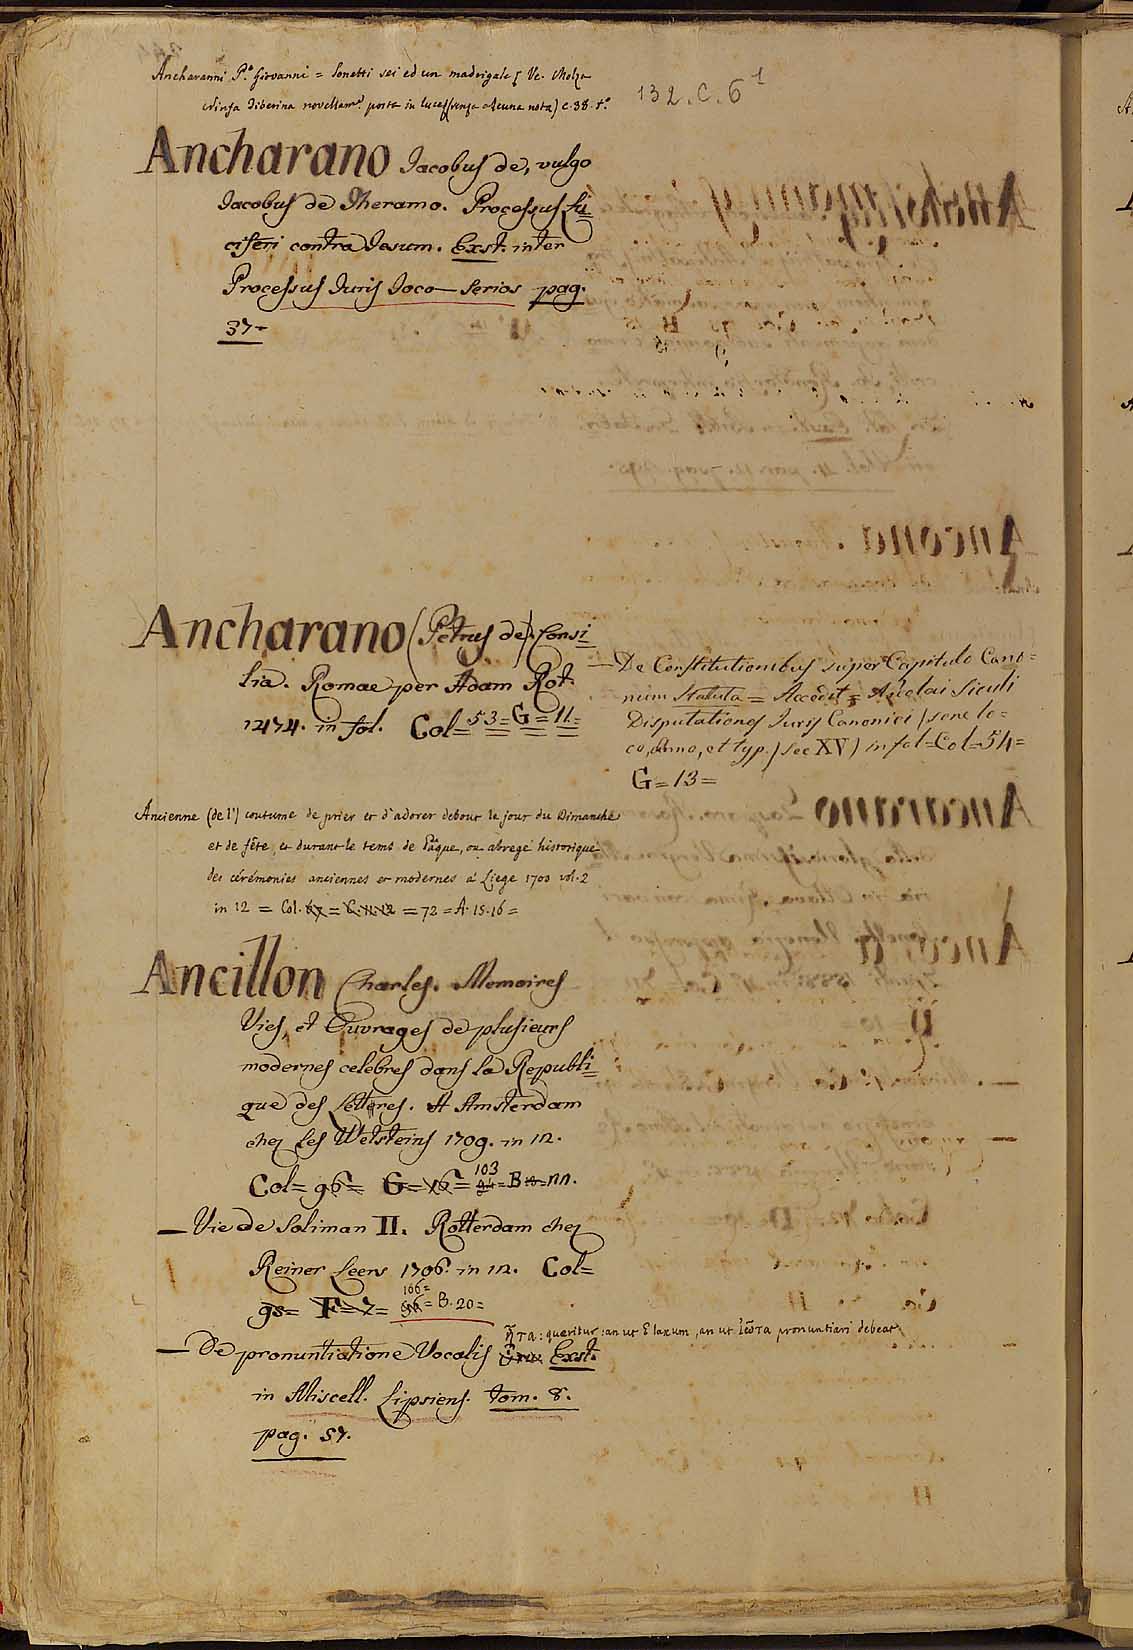 Ancharanni P.e Giovanni = Sonetti sei ed un madrigale [ Ve. Molza
Ninfa Tiberina novellam.e posta in luce (senza alcuna nota) c. 38. t.o
132. C. 6 1
Ancharano Jacobus de, vulgo
Jacobus de Theramo. Processus Lu=
ciferi contra Jesum. Exst. inter
Processus Juris Joco-Serios pag.
37-
Ancharano (Petrus de). Consi=
lia. Romae per Adam Rot
1474. in fol. Col= 53= G= 11=
— De Constitutionibus super Capitulo Cano=
num Statuta = Accedit = Siculi
Disputationes Juris Canonici (sene lo=
co, anno, et typ.) sec XV) in fol= Col= 54=
G= 13=
Ancienne (de l') coutume de prier et d'adorer debout le jour du Dimanche
et de fête, et durant le tems de Pâque, ou abregé historique
des cérémonies anciennes et modernes a Liege 1700 vol. 2
in 12 = Col. = C. 11. 12 = 72 = A. 15. 16 =
Ancillon Charles. Memoires
Vies, et Ouvrages de plusieurs
modernes celebres dans la Republi=
que des Lettres. A Amsterdam
chez les Wetsteins 1709. in 12.
Col= 96= G= 16= 103 = B = 11.
— Vie de Soliman II. Rotterdam chez
Reiner Leers 1706. in 12. Col=
95= F= 7= 106= = B. 20=
ῆτα: queritur: an ut E latum, an ut ἰῶτα pronuntiari debeat
— De pronuntiatione Vocalis Exst.
in Miscell. Lipsiens. tom. 8.
pag. 57.